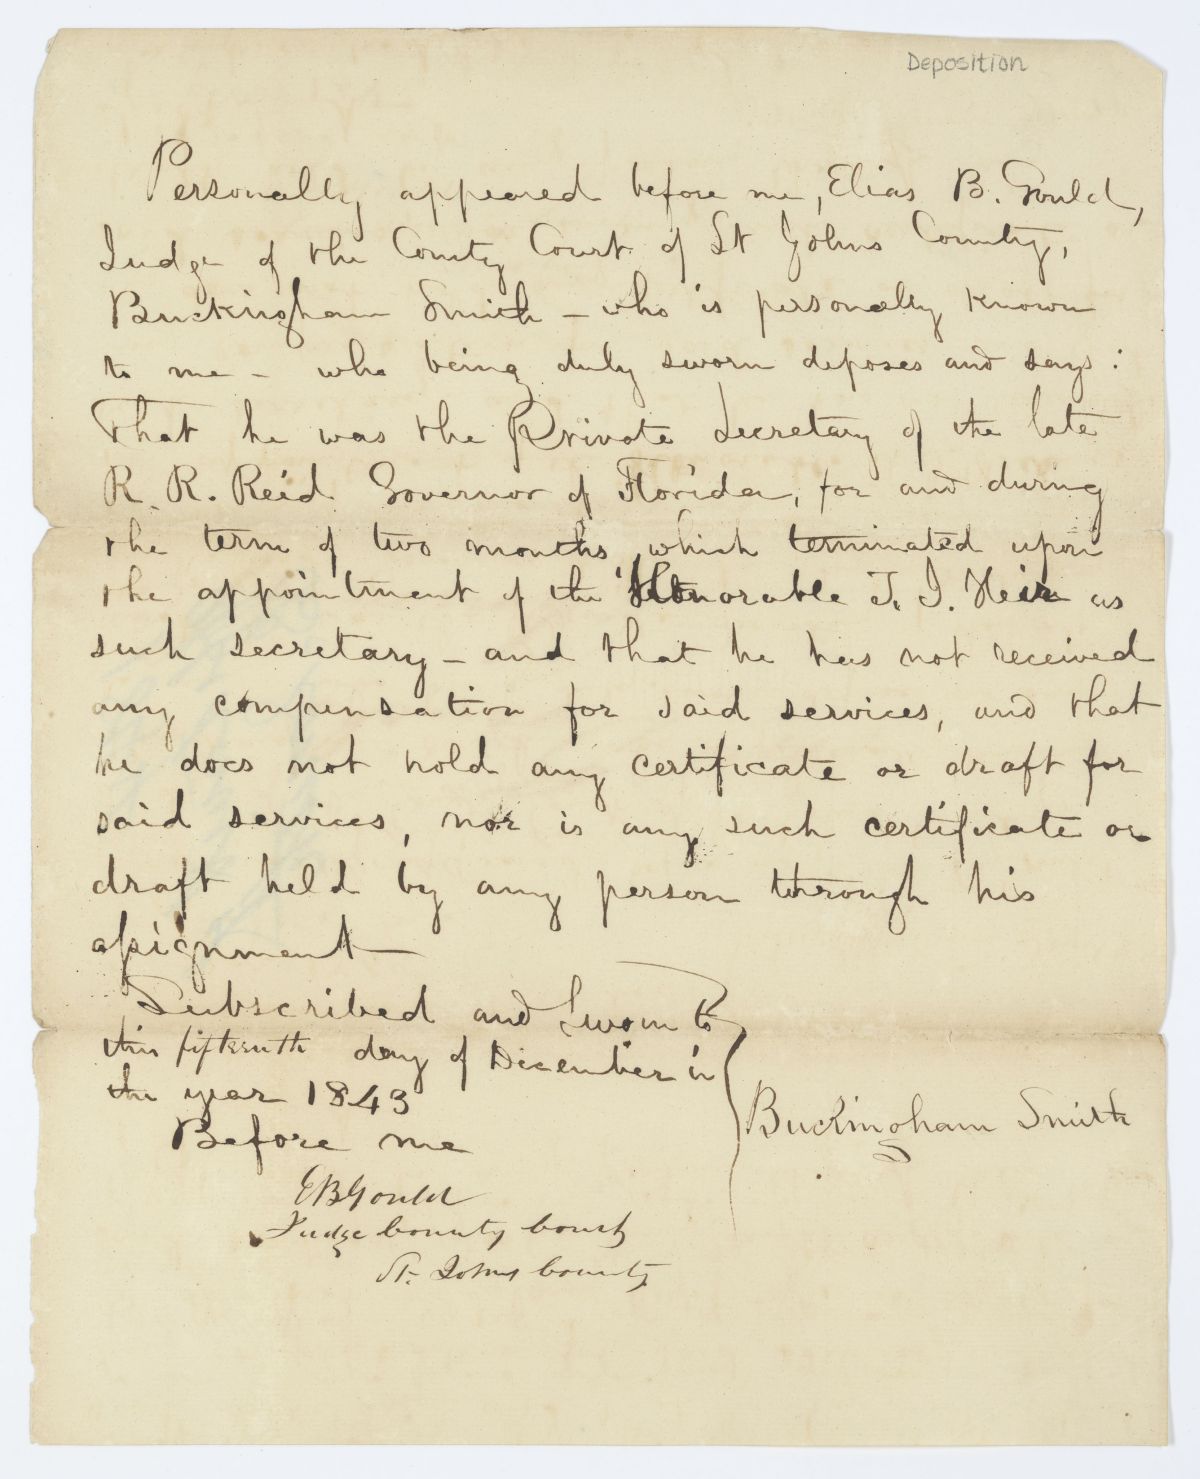 Deposition
Personally appeared before me, Elias B. Gould,
Judge of the County Court of St Johns County,
Buckingham Smith – who is personally known
to me – who being duly sworn deposes and says:
That he was the Private Secretary of the late
R. R. Reid Governor of Florida, for and during
the term of two months, which terminated upon
the appointment of the Honorable J. J. as
such secretary – and that he has not received
any compensation for said services, and that
he does not hold any certificate or draft for
said services, nor is any such certificate or
draft held by any person through his
assignment –
Subscribed and Sworn to
this fifteenth day of December in
the year 1843
Before me
Buckingham Smith
EBGould
Judge County Court
St. Johns County